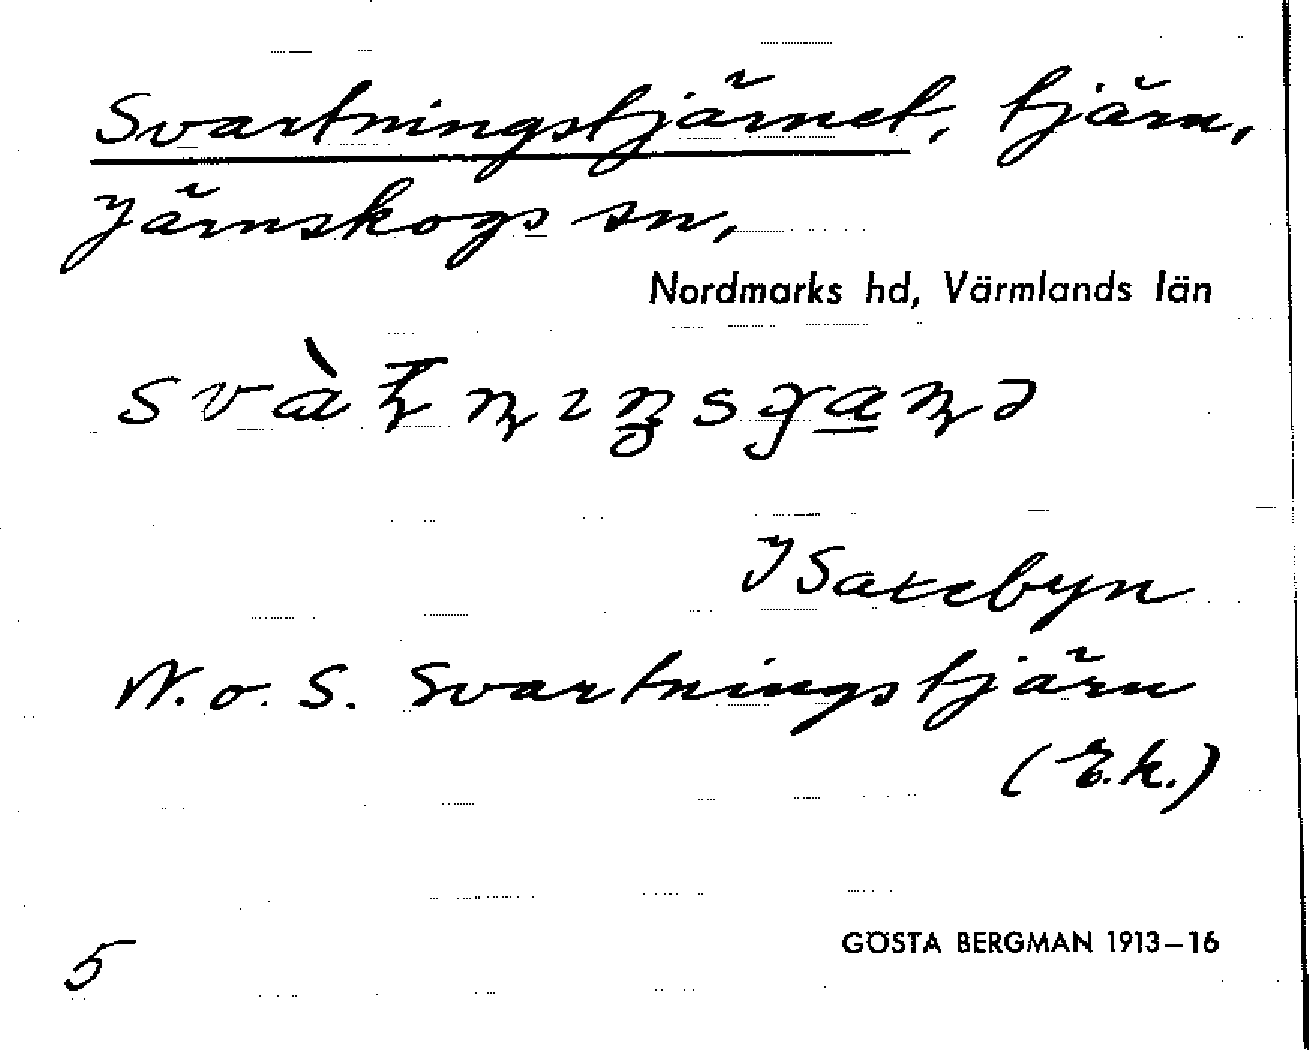 Svartningstjärnet, tjärn,
Järnskogs sn,
Nordmarks hd, Värmlands län
N. o. S. Svartningstjärn
(E.k.)
GÖSTA BERGMAN 1913–16
5